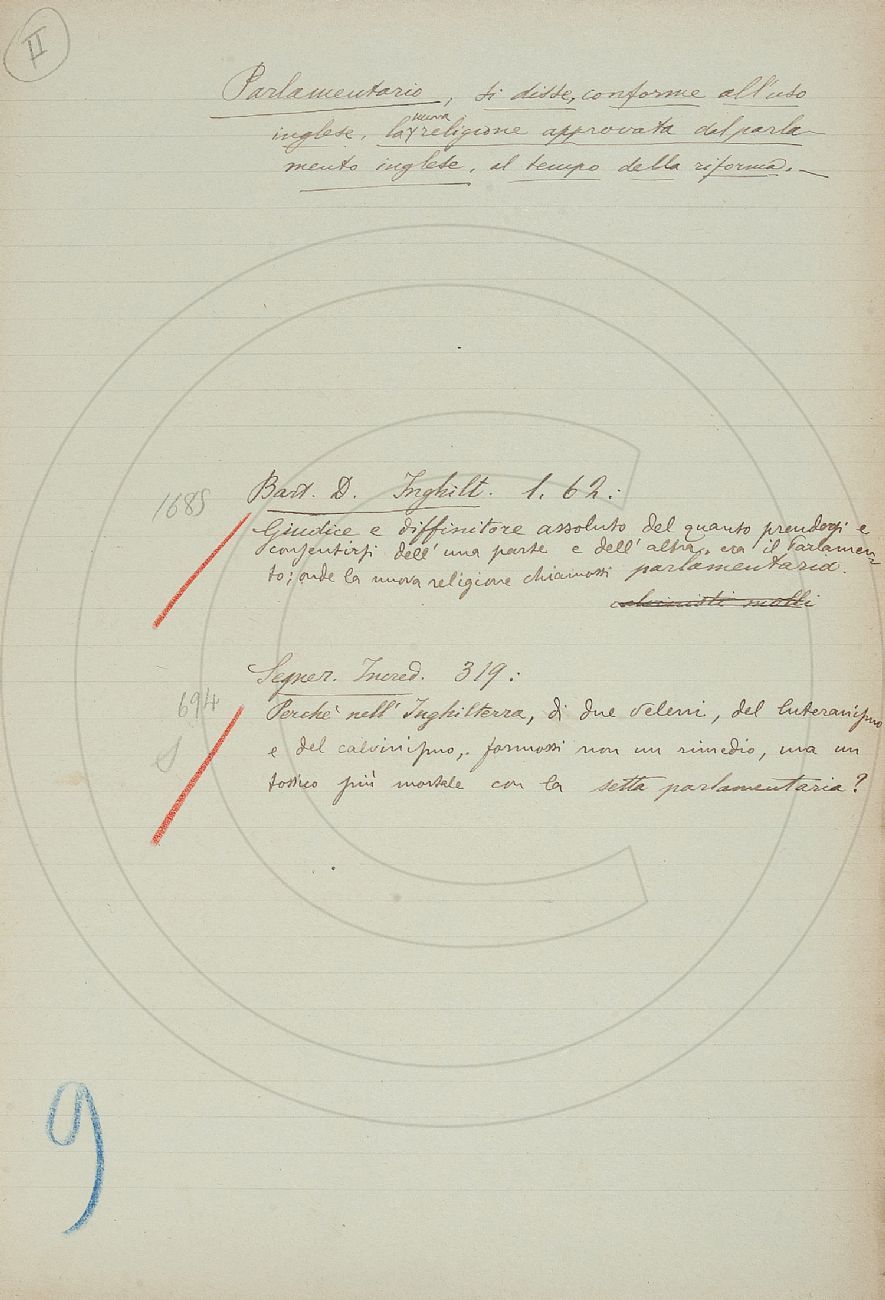 II
Parlamentario, si disse, conforme all'uso
inglese, la nuova religione approvata dal parla-
mento inglese, al tempo della riforma. —
1685
Bart. D. Inghilt. 1. 62:
Giudice e diffinitore assoluto del quanto prendersi e
consentirsi dell'una parte e dell'altra, era il Parlamen-
to; onde la nuova religione chiamossi parlamentaria.
calvinisti molli
694
S
Segner. Incred. 319:
Perchè nell'Inghilterra, di due veleni, del luteranismo
e del calvinismo, formossi non un rimedio, ma un
tossico più mortale con la setta parlamentaria?
9